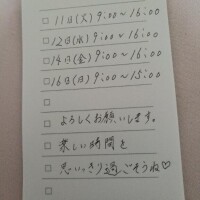 11日(火) 9:00~16:00
12日(水) 9:00~16:00
14日(金) 9:00~16:00
16日(日) 9:00~15:00
よろしくお願いします。
楽しい時間を
思いっきり過ごそうね♡